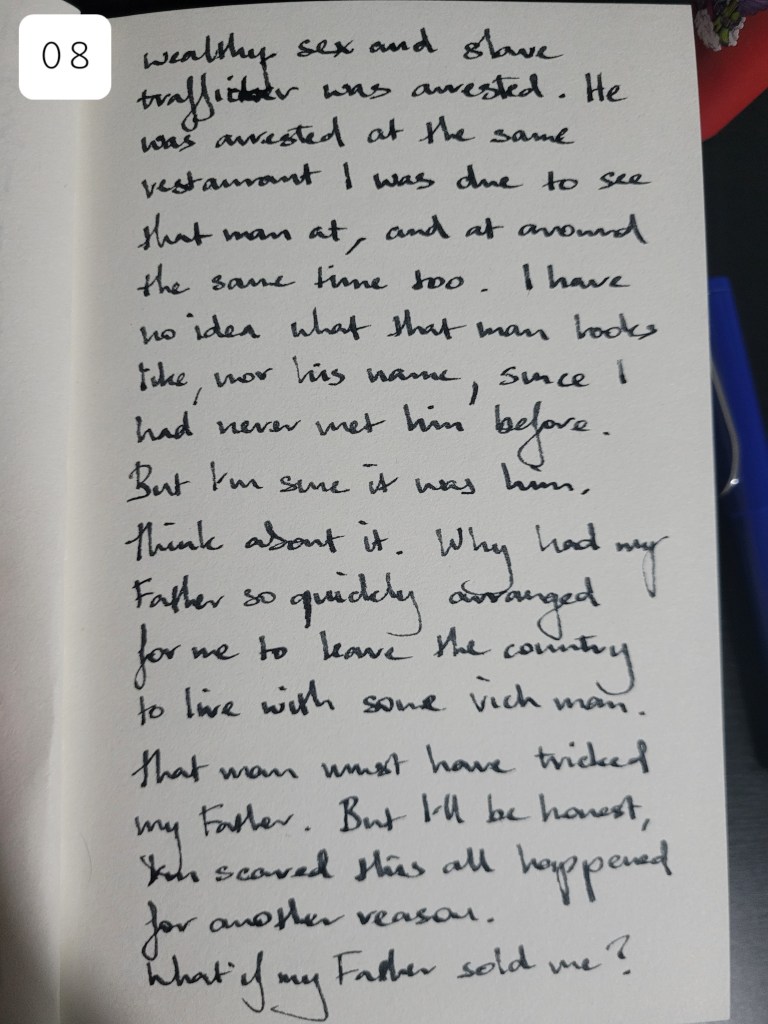 08
wealthy sex and slave
trafficker was arrested. He
was arrested at the same
restaurant I was due to see
that man at, and at around
the same time too. I have
no idea what that man looks
like, nor his name, since I
had never met him before.
But I'm sure it was him.
Think about it. Why had my
Father so quickly arranged
for me to leave the country
to live with some rich man.
That man must have tricked
my Father. But I'll be honest,
I'm scared this all happened
for another reason.
What if my Father sold me?